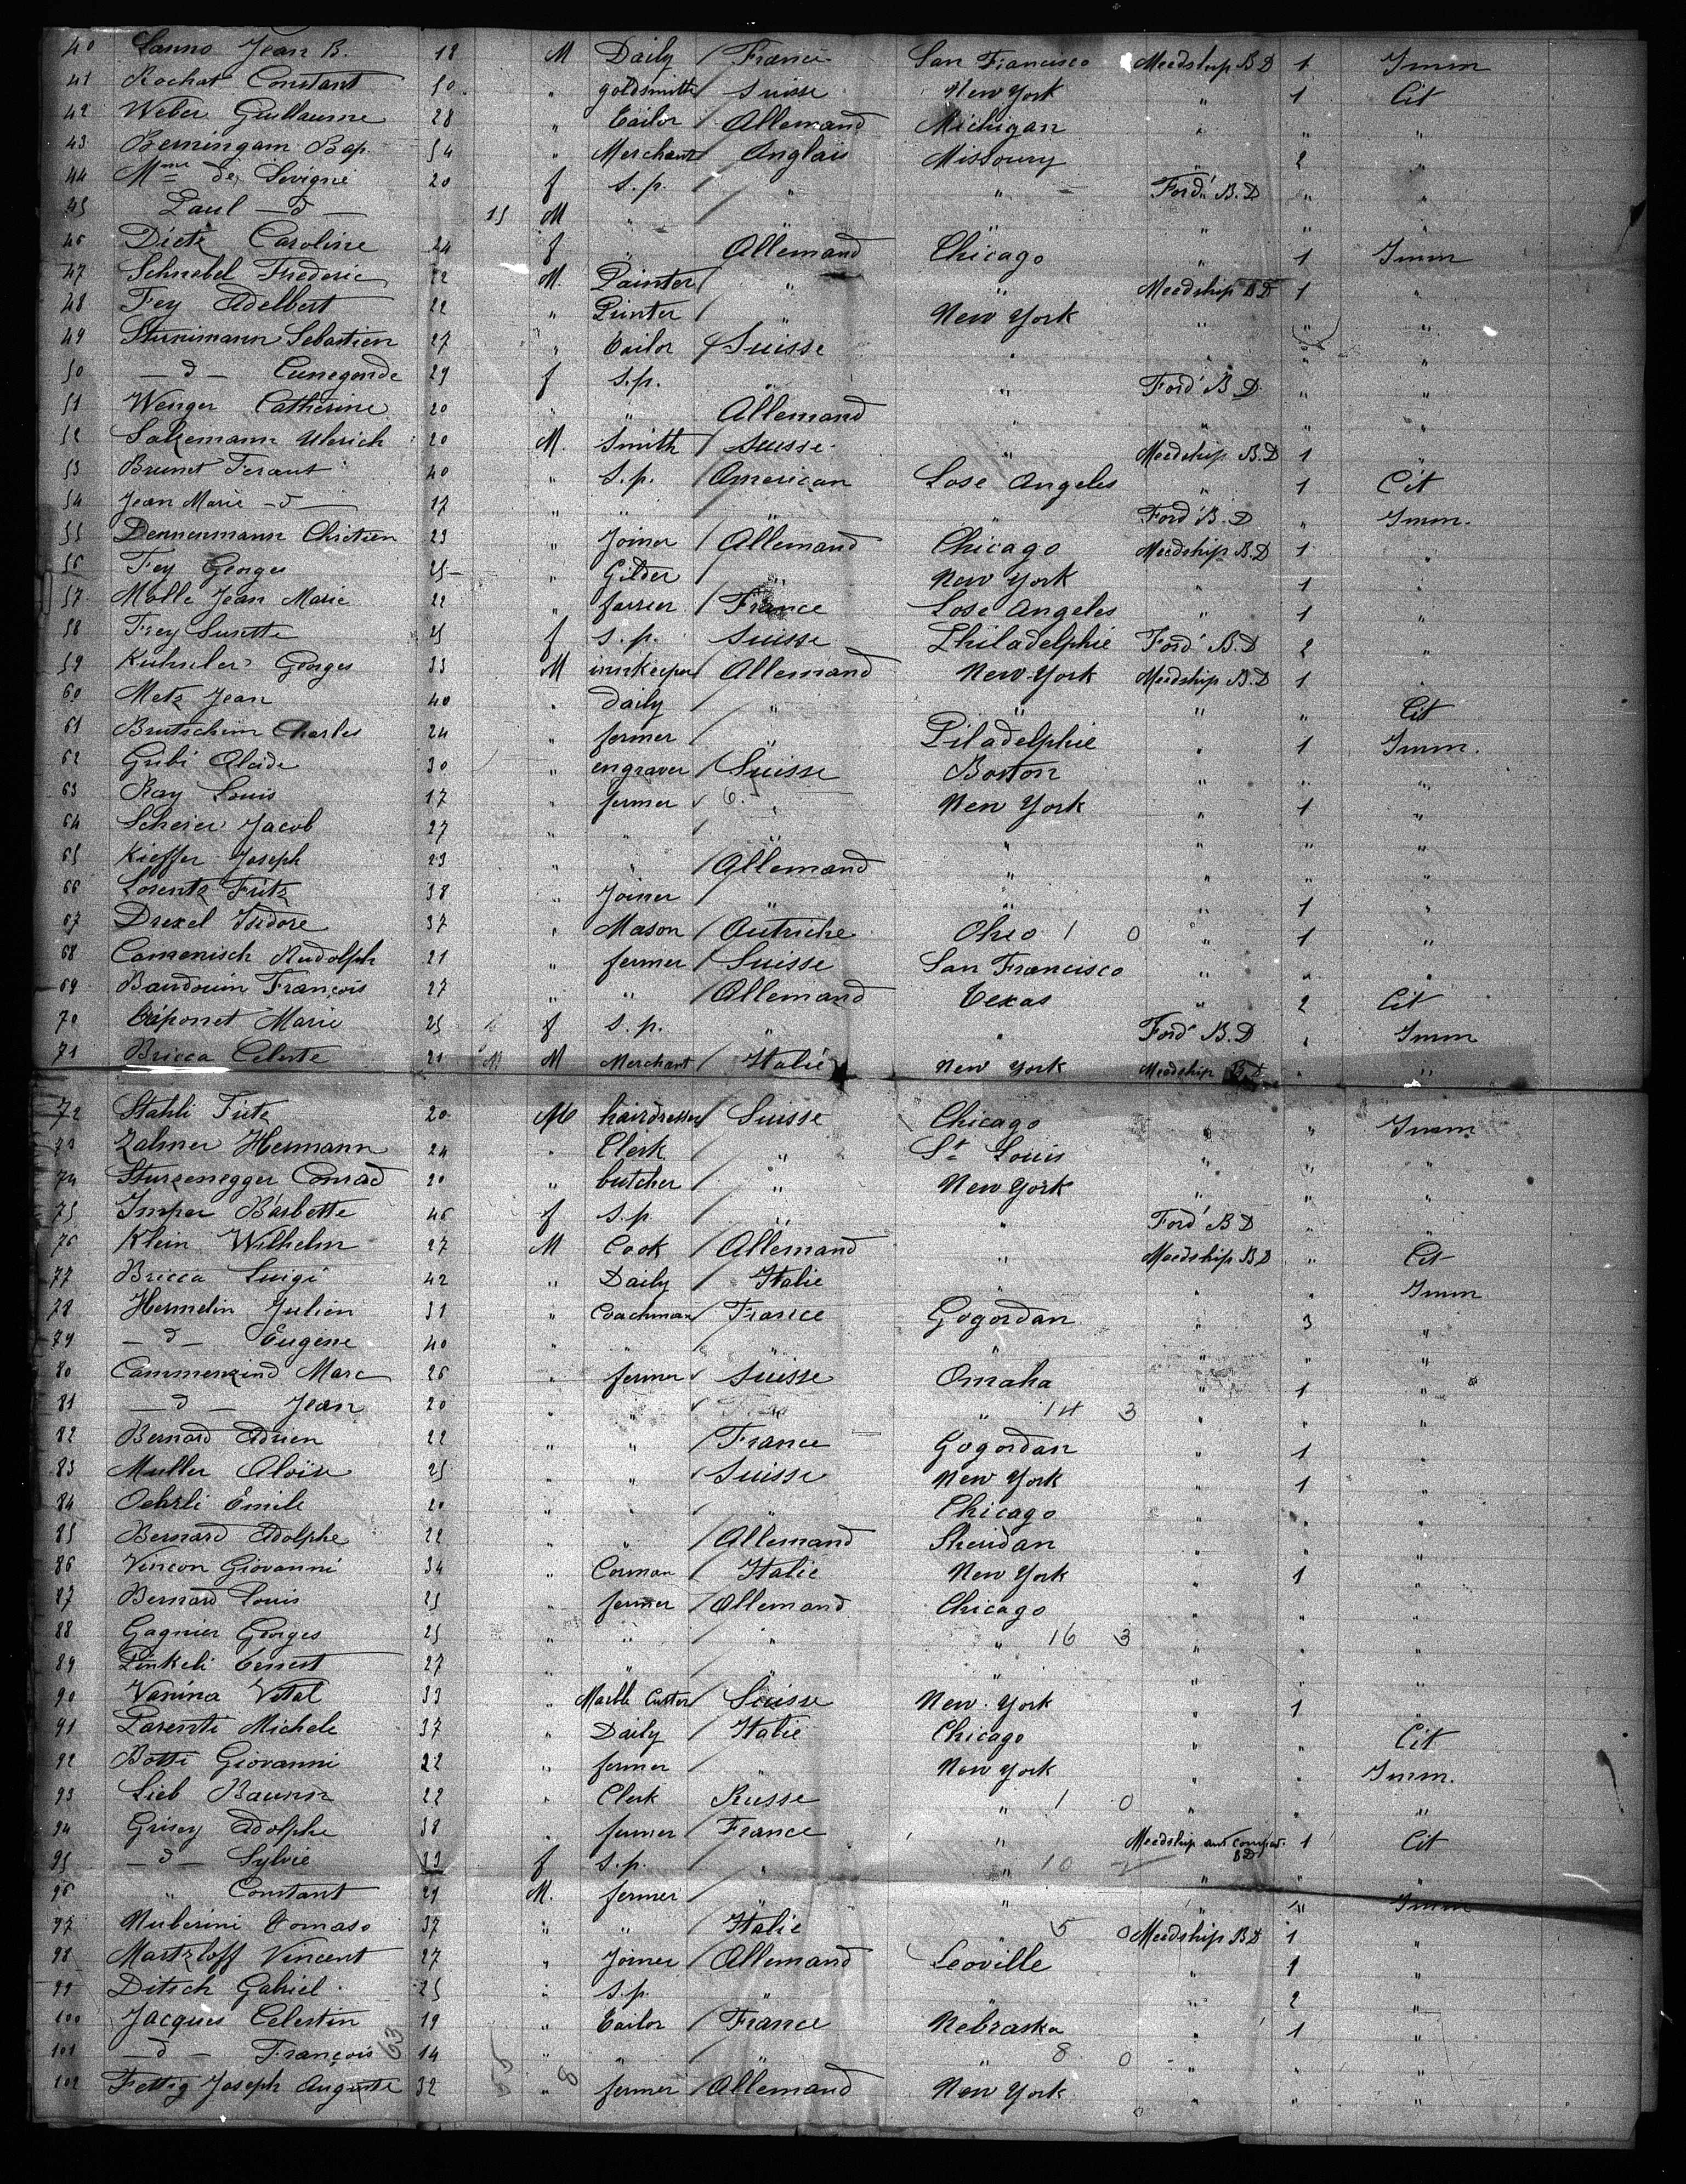 40 Lanno Jean B. 18 M Daily / France San Francisco Meedship B D 1 Imm
41 Rochat Constant 50 " goldsmith / Suisse New York " 1 Cit
42 Weber Guillaume 28 " Tailor / Allemand Michigan " " "
43 Berningam Bap. 54 " Merchant / Anglais Missoury " 2 "
44 Mme de Sevigné 20 f S.p. / " " Ford' B. D " "
45 Paul — d — 15 M " / " " " "
46 Dietz Caroline 24 f " Allemand Chicago " 1 Imm
47 Schnebel Frederic 22 M Painter / " " Meedship B D 1 "
48 Fey Adelbert 22 " Printer / " New York " " "
49 Sturnimann Sebastien 27 " Tailor / Suisse " " " "
50 — d — Cunegonde 29 f S.p. " " Ford' B D " "
51 Wenger Catherine 20 " " Allemand " " " "
52 Salzemann Ulerich 20 M. Smith / Suisse " Meedship B.D 1 "
53 Brunet Ferant 40 " S.p. / American Lose Angeles " 1 Cit
54 Jean Marie — d — 17 " " " " Ford' B. D " Imm.
55 Dennenmann Chretien 23 " Joiner / Allemand Chicago Meedship B.D 1 "
56 Fey Georges 25 — " Gilder / " New York " 1 "
57 Molle Jean Marie 22 " farrier / France Lose Angeles " 1 "
58 Frey Susette 25 f S.p. Suisse Philadelphie Ford' B.D 2 "
59 Kuhnler Georges 33 M innkeeper / Allemand New-York Meedship B.D 1 "
60 Metz Jean 40 " daily " " " " Cit
61 Brutschim Charles 24 " fermer / " Piladelphie " 1 Imm.
62 Gribi Alcide 30 " engraver / Suisse Boston " " "
63 Ray Louis 17 " fermer " New York " 1 "
64 Scherer Jacob 27 " " / " " " " "
65 Kieffer Joseph 23 " " / Allemand " " " "
66 Lorentz Fritz 38 " Joiner / " " " 1 "
67 Drexel Isidore 37 " Mason / Autriche Ohio 1 0 " 1 "
68 Camenisch Rudolph 21 " fermer / Suisse San Francisco " " "
69 Baudouin François 27 " " / Allemand Texas " 2 Cit
70 Caponet Marie 25 f S.p. " " Ford' B.D " Imm
71 Bricca Celeste 21 M M Merchant / Italie New York Meedship B D " "
72 Stahli Fritz 20 M hairdresser / Suisse Chicago " " Imm
73 Zalmer Hermann 24 " Clerk " St Louis " " "
74 Sturzenegger Conrad 20 " butcher / " New York " " "
75 Imper Barbette 46 f S.p. / " " Ford' B D " "
76 Klein Wilhelm 27 M Cook / Allemand " Meedship B D " Cit
77 Bricca Luigi 42 " Daily / Italie " " " Imm
78 Hermelin Julien 31 " Coachman / France Gogordan " 3 "
79 — d — Eugene 40 " " " " " " "
80 Cammenzind Marc 26 " fermer / Suisse Omaha " 1 "
81 — d — Jean 20 " " " 14 3 " " "
82 Bernard Adrien 22 " " / France Gogordan " 1 "
83 Muller Aloïse 25 " " / Suisse New York " 1 "
84 Oehrli Emile 20 " " " Chicago " " "
85 Bernard Adolphe 22 " " / Allemand Sheridan " " "
86 Vincon Giovanni 34 " Corman / Italie New York " 1 "
87 Bernard Louis 25 " fermer / Allemand Chicago " " "
88 Gagnier Georges 25 " " / " " 16 3 " " "
89 Pinkeli Ernest 27 " " / " " " " "
90 Vanina Vital 33 " Marble Cutter / Suisse New-York " 1 "
91 Parenti Michele 37 " Daily / Italie Chicago " " Cit
92 Botti Giovanni 22 " fermer / " New York " " Imm.
93 Lieb Baunn 22 " Clerk Russe " 1 0 " " "
94 Grisey Adolphe 38 " fermer / France " Meedship B D 1 Cit
95 — d — Sylvie 33 f S.p. " " 10 " " "
96 " Constant 29 M. fermer / " " " " Imm
97 Nuberini Tomaso 37 " " / Italie " 5 0 Meedship B D 1 "
98 Martzloff Vincent 27 " Joiner / Allemand Leoville " 1 "
99 Ditsch Gabriel 25 " S.p. " " " 2 "
100 Jacques Celestin 19 " Tailor / France Nebraska " 1 "
101 — d — François 14 " " / " " 8 0 " " "
102 Fettig Joseph Auguste 32 " fermer / Allemand New York " " "
63 55 8